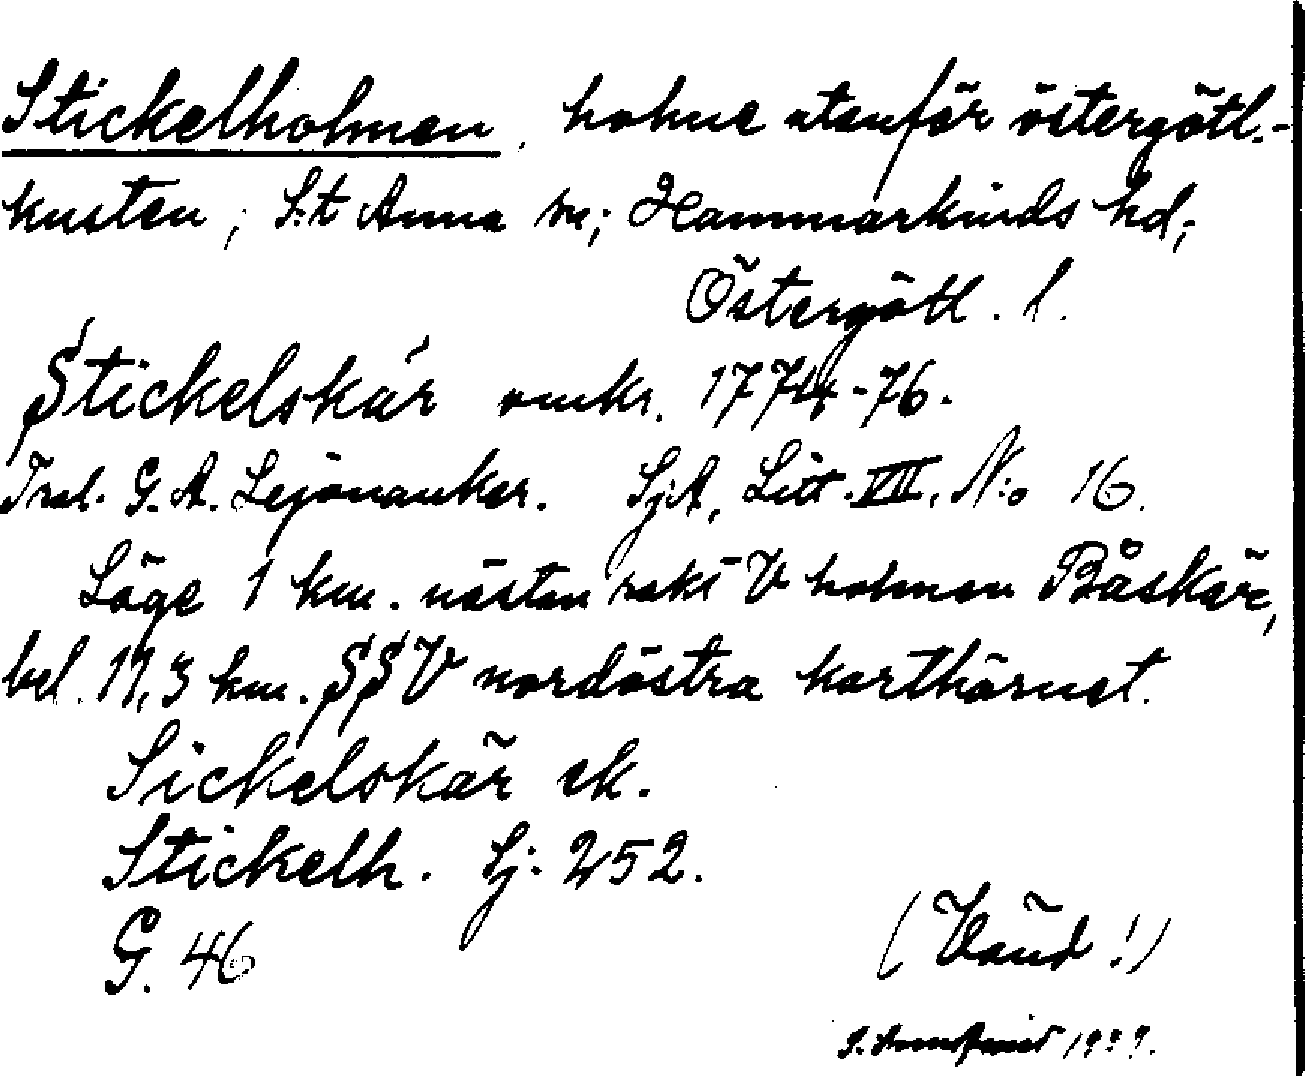 Stickelholmen, holme utanför östergötl.-
kusten, S:t Anna sn; Hammarkinds hd;
Östergötl. l.
Stickelskär omkr. 1774-76.
G. A. Lejonanker. SjA, Litt. VII. N:o 16.
Läge 1 km. nästan rakt V holmen Båskär,
bel. 17,3 km. SSV nordöstra karthörnet.
Sickelskär ek.
Stickelh. Sj: 252.
G. 46
(Vänd!)